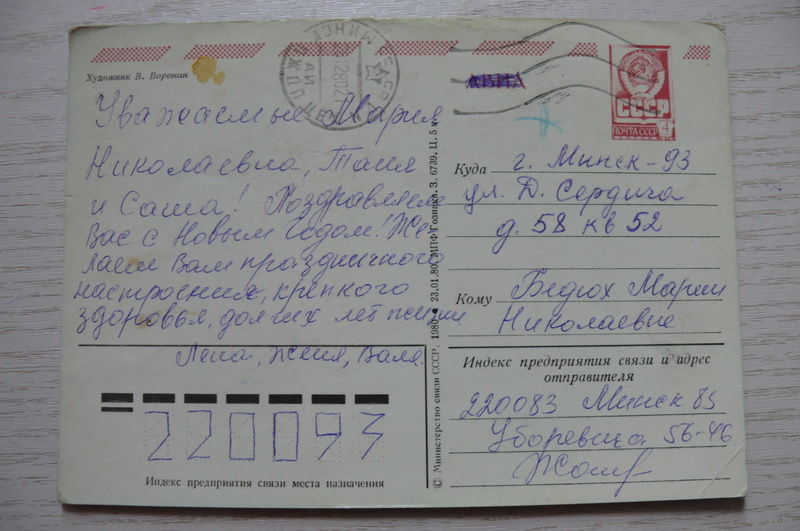 Художник В. Воронин
Уважаемые Мария
Николаевна, Таня
и Саша! Поздравляем
Вас с Новым годом! Же
лаем Вам праздничного
настроения, крепкого
здоровья, долгих лет жизни
Лена, Женя, Валя.
220093
Индекс предприятия связи места назначения
© Министерство связи СССР. 1980 23.01.80. МПФ Гознака. З. 6739. Ц. 5 к
МИНСК
АВИА
СССР
ПОЧТА СССР 4
Куда г. Минск-93
ул. Д. Сердича
д. 58 кв 52
Кому Бедюх Марии
Николаевне
Индекс предприятия связи и адрес
отправителя
220083 Минск 83
Уборевича 56-46